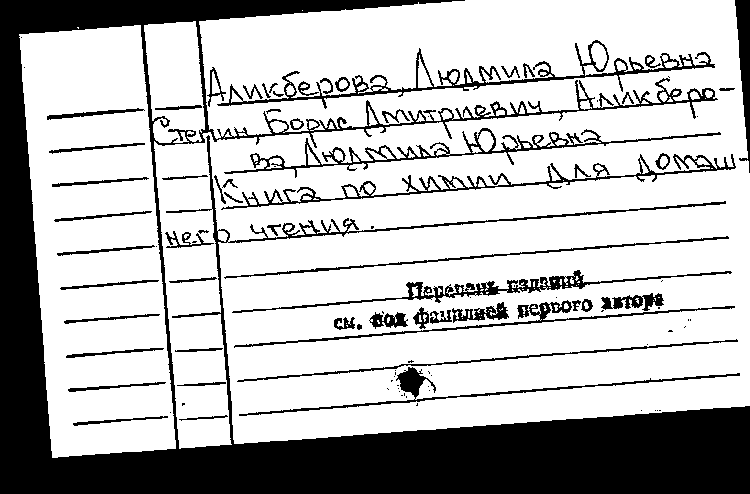 Аликберова, Людмила Юрьевна
Степин, Борис Дмитриевич, Аликберо-
ва, Людмила Юрьевна
Книга по химии для домаш-
него чтения.
Перечень изданий
см. под фамилией первого автора